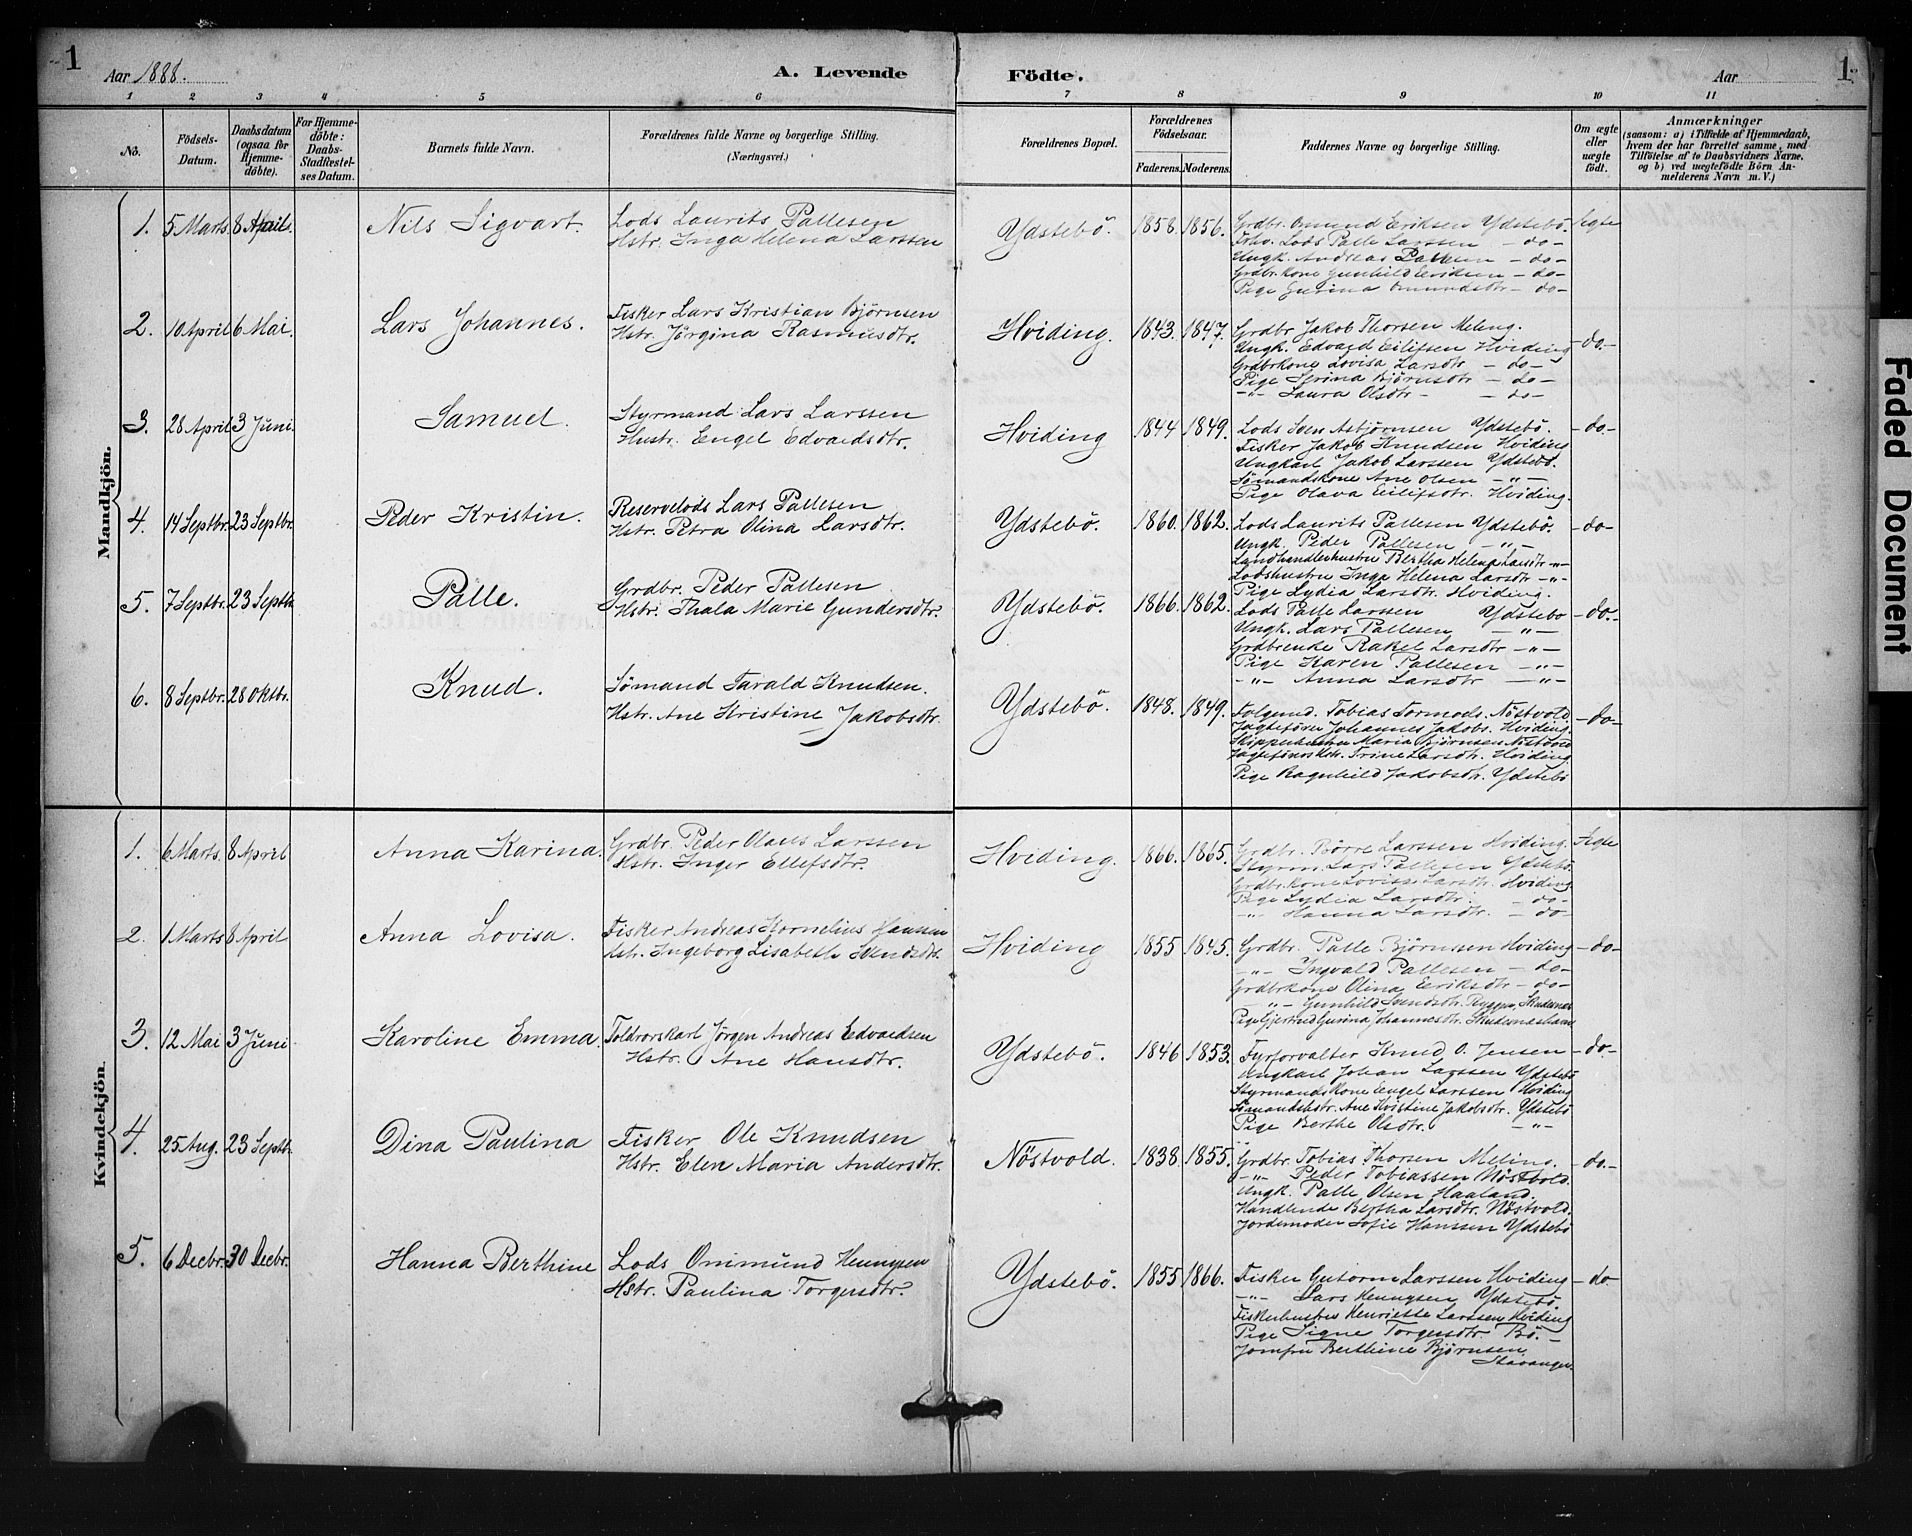 1
Aar 1888.
A. Levende Födte.
Aar
1
1 2 3 4 5 6 7 8 9 10 11
No.
Födsels-Datum.
Daabsdatum (ogsaa for Hjemme-döbte).
For Hjemme-döbte: Daabs-Stadfæstel-ses Datum.
Barnets fulde Navn.
Forældrenes fulde Navne og borgerlige Stilling. (Næringsvei.)
Forældrenes Bopæl.
Forældrenes Födselsaar.
Faderens. Moderens.
Faddernes Navne og borgerlige Stilling.
Om ægte eller uægte födt.
Anmærkninger
(saasom: a) i Tilfælde af Hjemmedaab, hvem der har forrettet samme, med Tilföielse af to Daabsvidners Navne, og b) ved uægtefödte Börn An-melderens Navn m. V.)
Mandkjön.
1. 5 Marts 8 April. Nils Sigvart. Lods Laurits Pallesen
Hstr. Inga Helena Larssen
Ydstebö. 1858. 1856. Grdbr. Omund Eriksen Ydstebö. Ægte
Lods Palle Larssen - do -
Ungk. Andreas Pallesen - do -
Grdbr. kone Gunhild Eriksen - do -
Pige Gurina Omundsdtr - do -
2. 10 April 6 Mai. Lars Johannes. Fisker Lars Kristian Bjørnsen
Hstr. Jörgina Rasmusdtr.
Hviding. 1843. 1847. Grdbr Jakob Thorsen Meling. - do. -
Ungk. Edvard Eilifsen Hviding
Grdbrkone Lovisa Larsdtr - do -
Pige Serina Bjørnsdtr - do -
- " - Laura Olsdtr - - do -
3. 28 April 3 Juni. Samuel. Styrmand Lars Larssen
Hustr. Engel Edvardsdtr.
Hviding 1844 1849. Lods Sven Asbjørnsen Ydstebö. - do -
Fisker Jakob Knudsen Hviding
Ungkarl Jakob Larssen Ydstebö.
Sømandskone Ane Olsen - " -
Pige Olava Eilifsdtr. Hviding.
4. 14 Septbr. 23 Septbr. Peder Kristin. Reservelods Lars Pallesen
Hstr. Petra Olina Larsdtr.
Ydstebö. 1860. 1862. Lods Laurits Pallesen Ydstebö. - do -
Ungk. Peder Pallesen - " -
Landhandlerhustru Bertha Helena Larsdtr - " -
Lodshustru Inga Helena Larsdtr - " -
Pige Lydia Larsdtr. Hviding.
5. 7 Septbr. 23 Septb. Palle. Grdbr. Peder Pallesen
Hstr. Thala Marie Gundersdtr.
Ydstebö. 1866. 1862. Lods Palle Larssen Ydstebö - do. -
Ungk. Lars Pallesen - " -
Grdbrenke Rakel Larsdtr - " -
Pige Karen Pallesen - " -
- " - Anna Larsdtr - " -
6. 8 Septbr. 28 Oktbr. Knud. Sømand Tarald Knudsen.
Hstr. Ane Kristine Jakobsdtr.
Ydstebö. 1848. 1849. Tobias Tormods. Nöstvold - do -
Jagtefører Johannes Jakobs. Hviding.
Maria Bjørnsen Nöstvold
Trine Larsdtr. Hviding
Pige Ragnhild Jakobsdtr. Ydstebö
Kvindekjön.
1. 6 Marts. 8 April Anna Karina. Grdbr. Peder Olaus Larssen
Hstr. Inger Ellefsdtr.
Hviding. 1866. 1865. Grdbr. Børre Larssen Hviding. Ægte
Styrm. Lars Pallesen Ydstebö.
Grdbr. kone Lovisa Larsdtr. Hviding
Pige Lydia Larsdtr. - do -
- " - Hanna Larsdtr. - do
2. 1 Marts 8 April Anna Lovisa. Fisker Andreas Kornelius Hansen
Hstr. Ingeborg Lisabeth Svendsdtr.
Hviding 1855 1845. Grdbr. Palle Bjørnsen Hviding - do -
- " - Ingvald Pallesen - do -
Grdbrkone Olina Eriksdtr - do -
- " - Gunhild Svendsdtr. Ryggen, Skudenæs
Pige Gjertrud Gurina Johannesdtr. Skudeneshavn
3. 12 Mai 3 Juni Karoline Emma. Toldrorskarl Jørgen Andreas Edvardsen
Hstr. Ane Hansdtr.
Ydstebö. 1846 1853. Fyrforvalter Knud O. Jensen - do. -
Ungkarl Johan Larssen Ydstebö
Styrmandskone Engel Larssen Hviding
Sømandshstr. Ane Kristine Jakobsdtr. Ydstebö
Pige Berthe Olsdtr. - " -
4. 25 Aug. 23 Septbr. Dina Paulina Fisker Ole Knudsen
Hstr. Elen Maria Andersdtr.
Nöstvold. 1838. 1855. Grdbr. Tobias Thorsen Meling. - do. -
- " - Peder Tobiassen Nöstvold.
Ungk. Palle Olsen Haaland.
Handlende Bertha Larsdtr. Nöstvold.
Jordemoder Sofie Hanssen Ydstebö
5. 6 Decbr. 30 Decbr. Hanna Berthine Lods Ommund Hennysen
Hstr. Paulina Torgersdtr.
Ydstebö. 1855 1866. Fisker Gutorm Larssen Hviding - do -
- " - Lars Hennysen Ydstebö.
Fiskerhustru Henriette Larssen Hviding
Pige Signe Torgersdtr. Bö. -
Jomfru Berthine Bjørnsen
Stavanger.
Faded Document